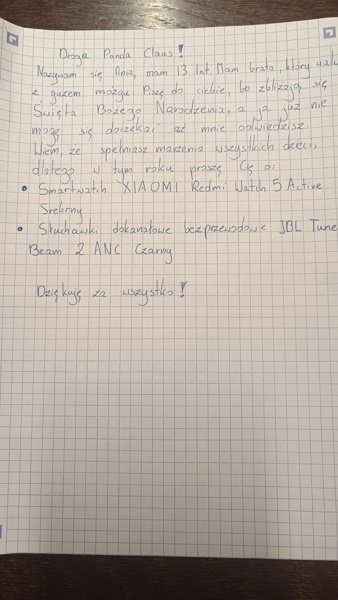 Droga Panda Claus!
Nazywam się Ania, mam 13 lat. Mam brata, który walu
z guzem mózgu. Piszę do ciebie, bo zbliżają się
Święta Bożego Narodzenia, a ja już nie
mogę się doczekać aż mnie odwiedzisz.
Wiem, że spełniasz marzenia wszystkich dzieci,
dlatego w tym roku proszę Cię o:
• Smartwatch XIAOMI Redmi Watch 5 Active
Srebrny
• Słuchawki dokanałowe bezprzewodowe JBL Tune
Beam 2 ANC Czarny
Dziękuję za wszystko!